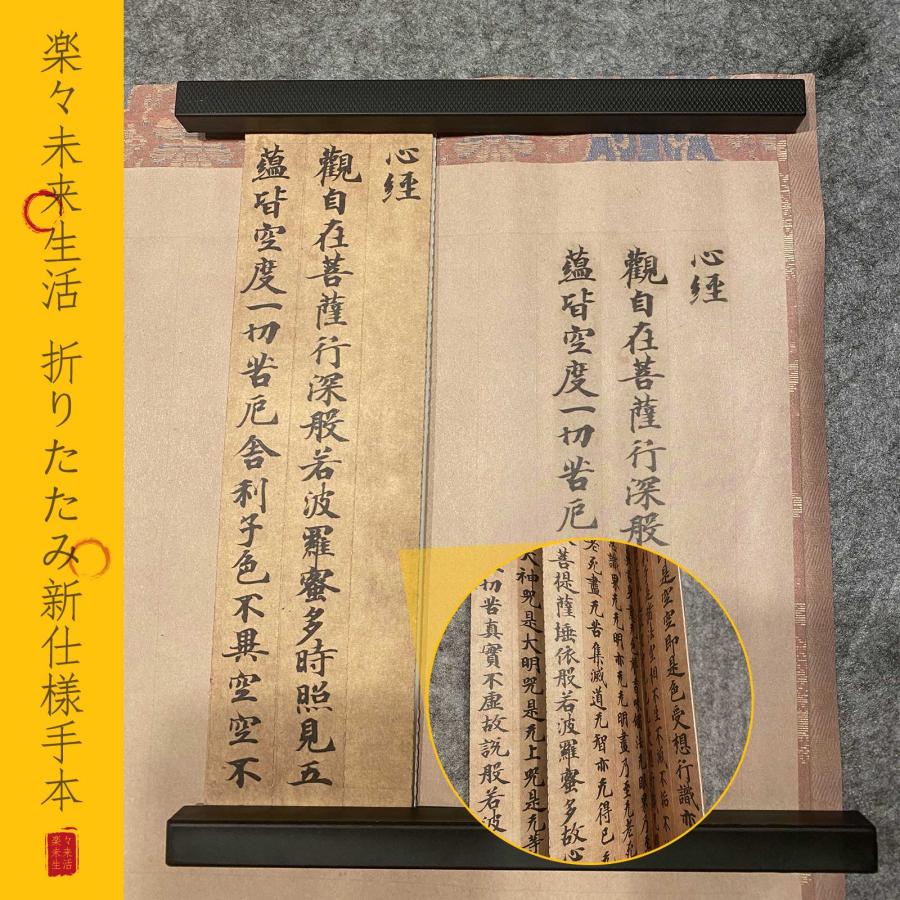 楽々未来生活 折りたたみ新仕様手本
楽々未来生活
心経
觀自在菩薩行深般若波羅蜜多時照見五
蘊皆空度一切苦厄舍利子色不異空空不
心経
觀自在菩薩行深般
蘊皆空度一切苦厄
是空空即是色受想行識亦
不生不滅不垢不
亦无无明盡乃至无老
老死盡无苦集滅道无智亦无得已
菩提薩埵依般若波羅蜜多故心
大神咒是大明咒是无上咒是无等
切苦真實不虛故説般若波